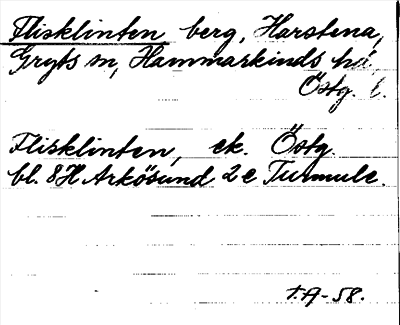 Flisklinten, berg, Harstena,
Gryts sn, Hammarkinds hd,
Östg. l.
Flisklinten, ek. Östg.
bl. 8H Arkösund 2e Tummule.
T.A-58.